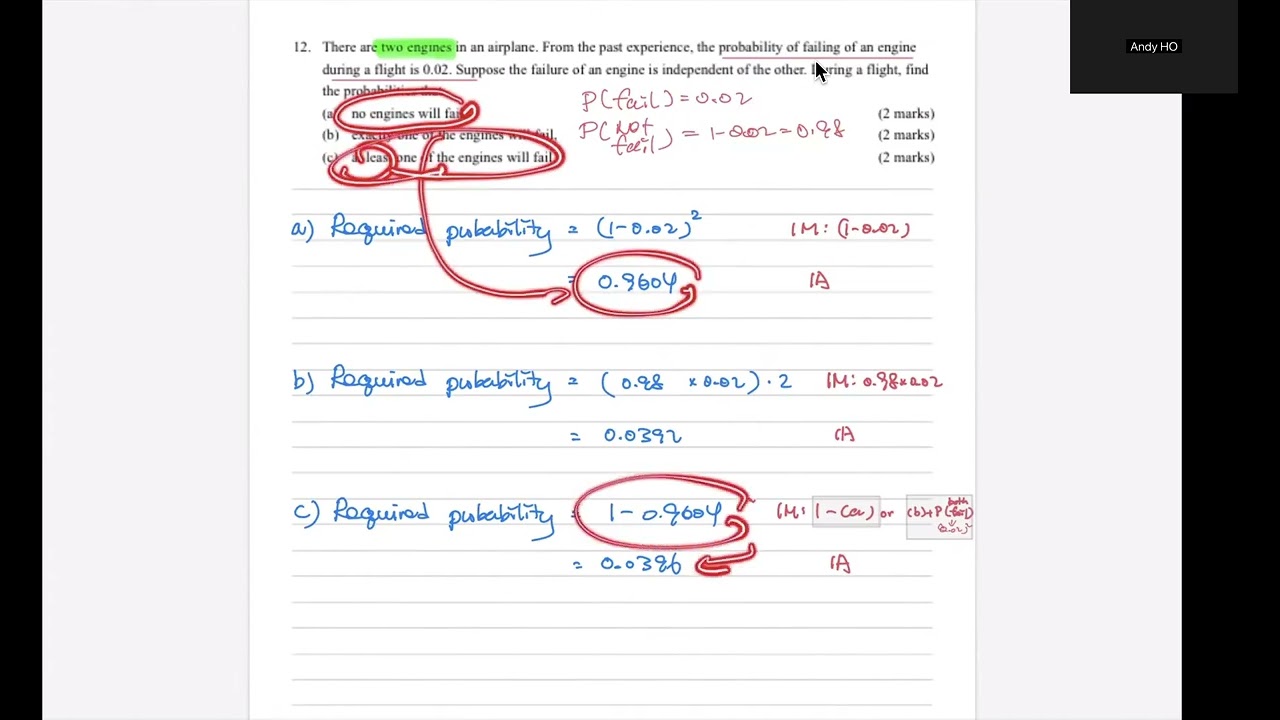 Andy HO
12. There are two engines in an airplane. From the past experience, the probability of failing of an engine
during a flight is 0.02. Suppose the failure of an engine is independent of the other. During a flight, find
the probabilities that
P(fail) = 0.02
(a) no engines will fail (2 marks)
P(not fail) = 1-0.02 = 0.98
(b) exactly one of the engines will fail, (2 marks)
(c) at least one of the engines will fail (2 marks)
a) Required probability = (1-0.02)² 1M: (1-0.02)
= 0.9604 1A
b) Required probability = (0.98 × 0.02) · 2 1M: 0.98×0.02
= 0.0392 1A
c) Required probability = 1 - 0.9604 1M: 1 - (a) or (b)+P(both fail)
= 0.0396 1A